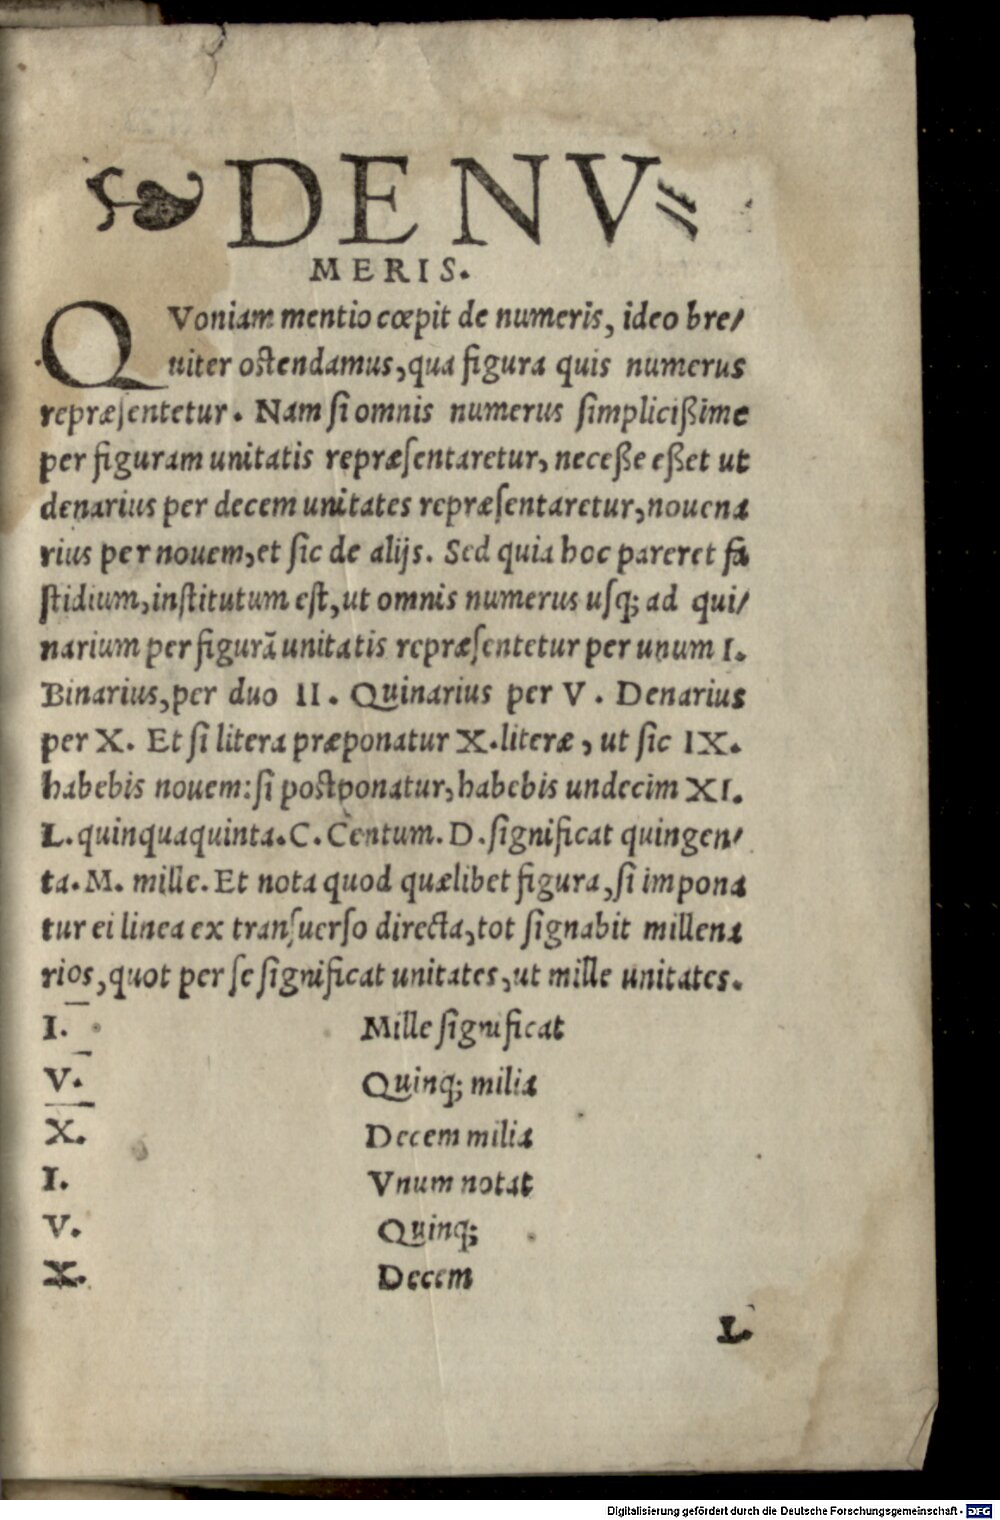 ❧ DE NV⸗
MERIS.
QVoniam mentio cœpit de numeris, ideo bre/
uiter ostendamus, qua figura quis numerus
repræsentetur. Nam si omnis numerus simplicißime
per figuram unitatis repræsentaretur, neceße eßet ut
denarius per decem unitates repræsentaretur, nouena
rius per nouem, et sic de alijs. Sed quia hoc pareret fa
stidium, institutum est, ut omnis numerus usq; ad qui/
narium per figurã unitatis repræsentetur per unum I.
Binarius, per duo II. Quinarius per V. Denarius
per X. Et si litera præponatur X. literæ, ut sic IX.
habebis nouem: si postponatur, habebis undecim XI.
L. quinquaquinta. C. Centum. D. significat quingen/
ta. M. mille. Et nota quod quælibet figura, si impona
tur ei linea ex transuerso directa, tot signabit millena
rios, quot per se significat unitates, ut mille unitates.
I̅. Mille significat
V̅. Quinq; milia
X̅. Decem milia
I. Vnum notat
V. Quinq;
X. Decem
L.
Digitalisierung gefördert durch die Deutsche Forschungsgemeinschaft - DFG